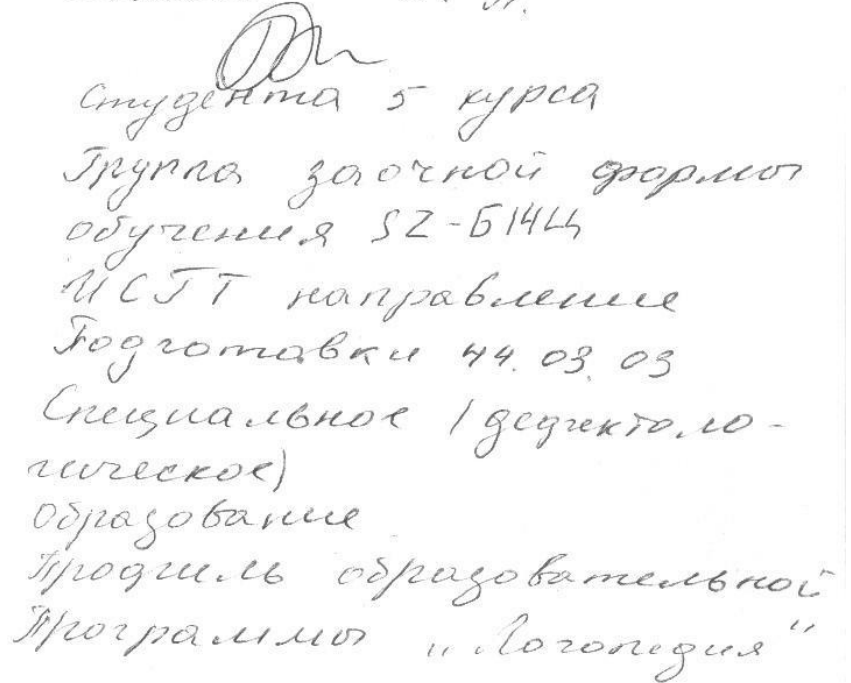 студента 5 курса
Группа заочной формы
обучения SZ-Б14Ц
ИСГТ направление
Подготовки 44.03.03
Специальное (дефектоло-
гическое)
образование
Профиль образовательной
Программы „Логопедия"